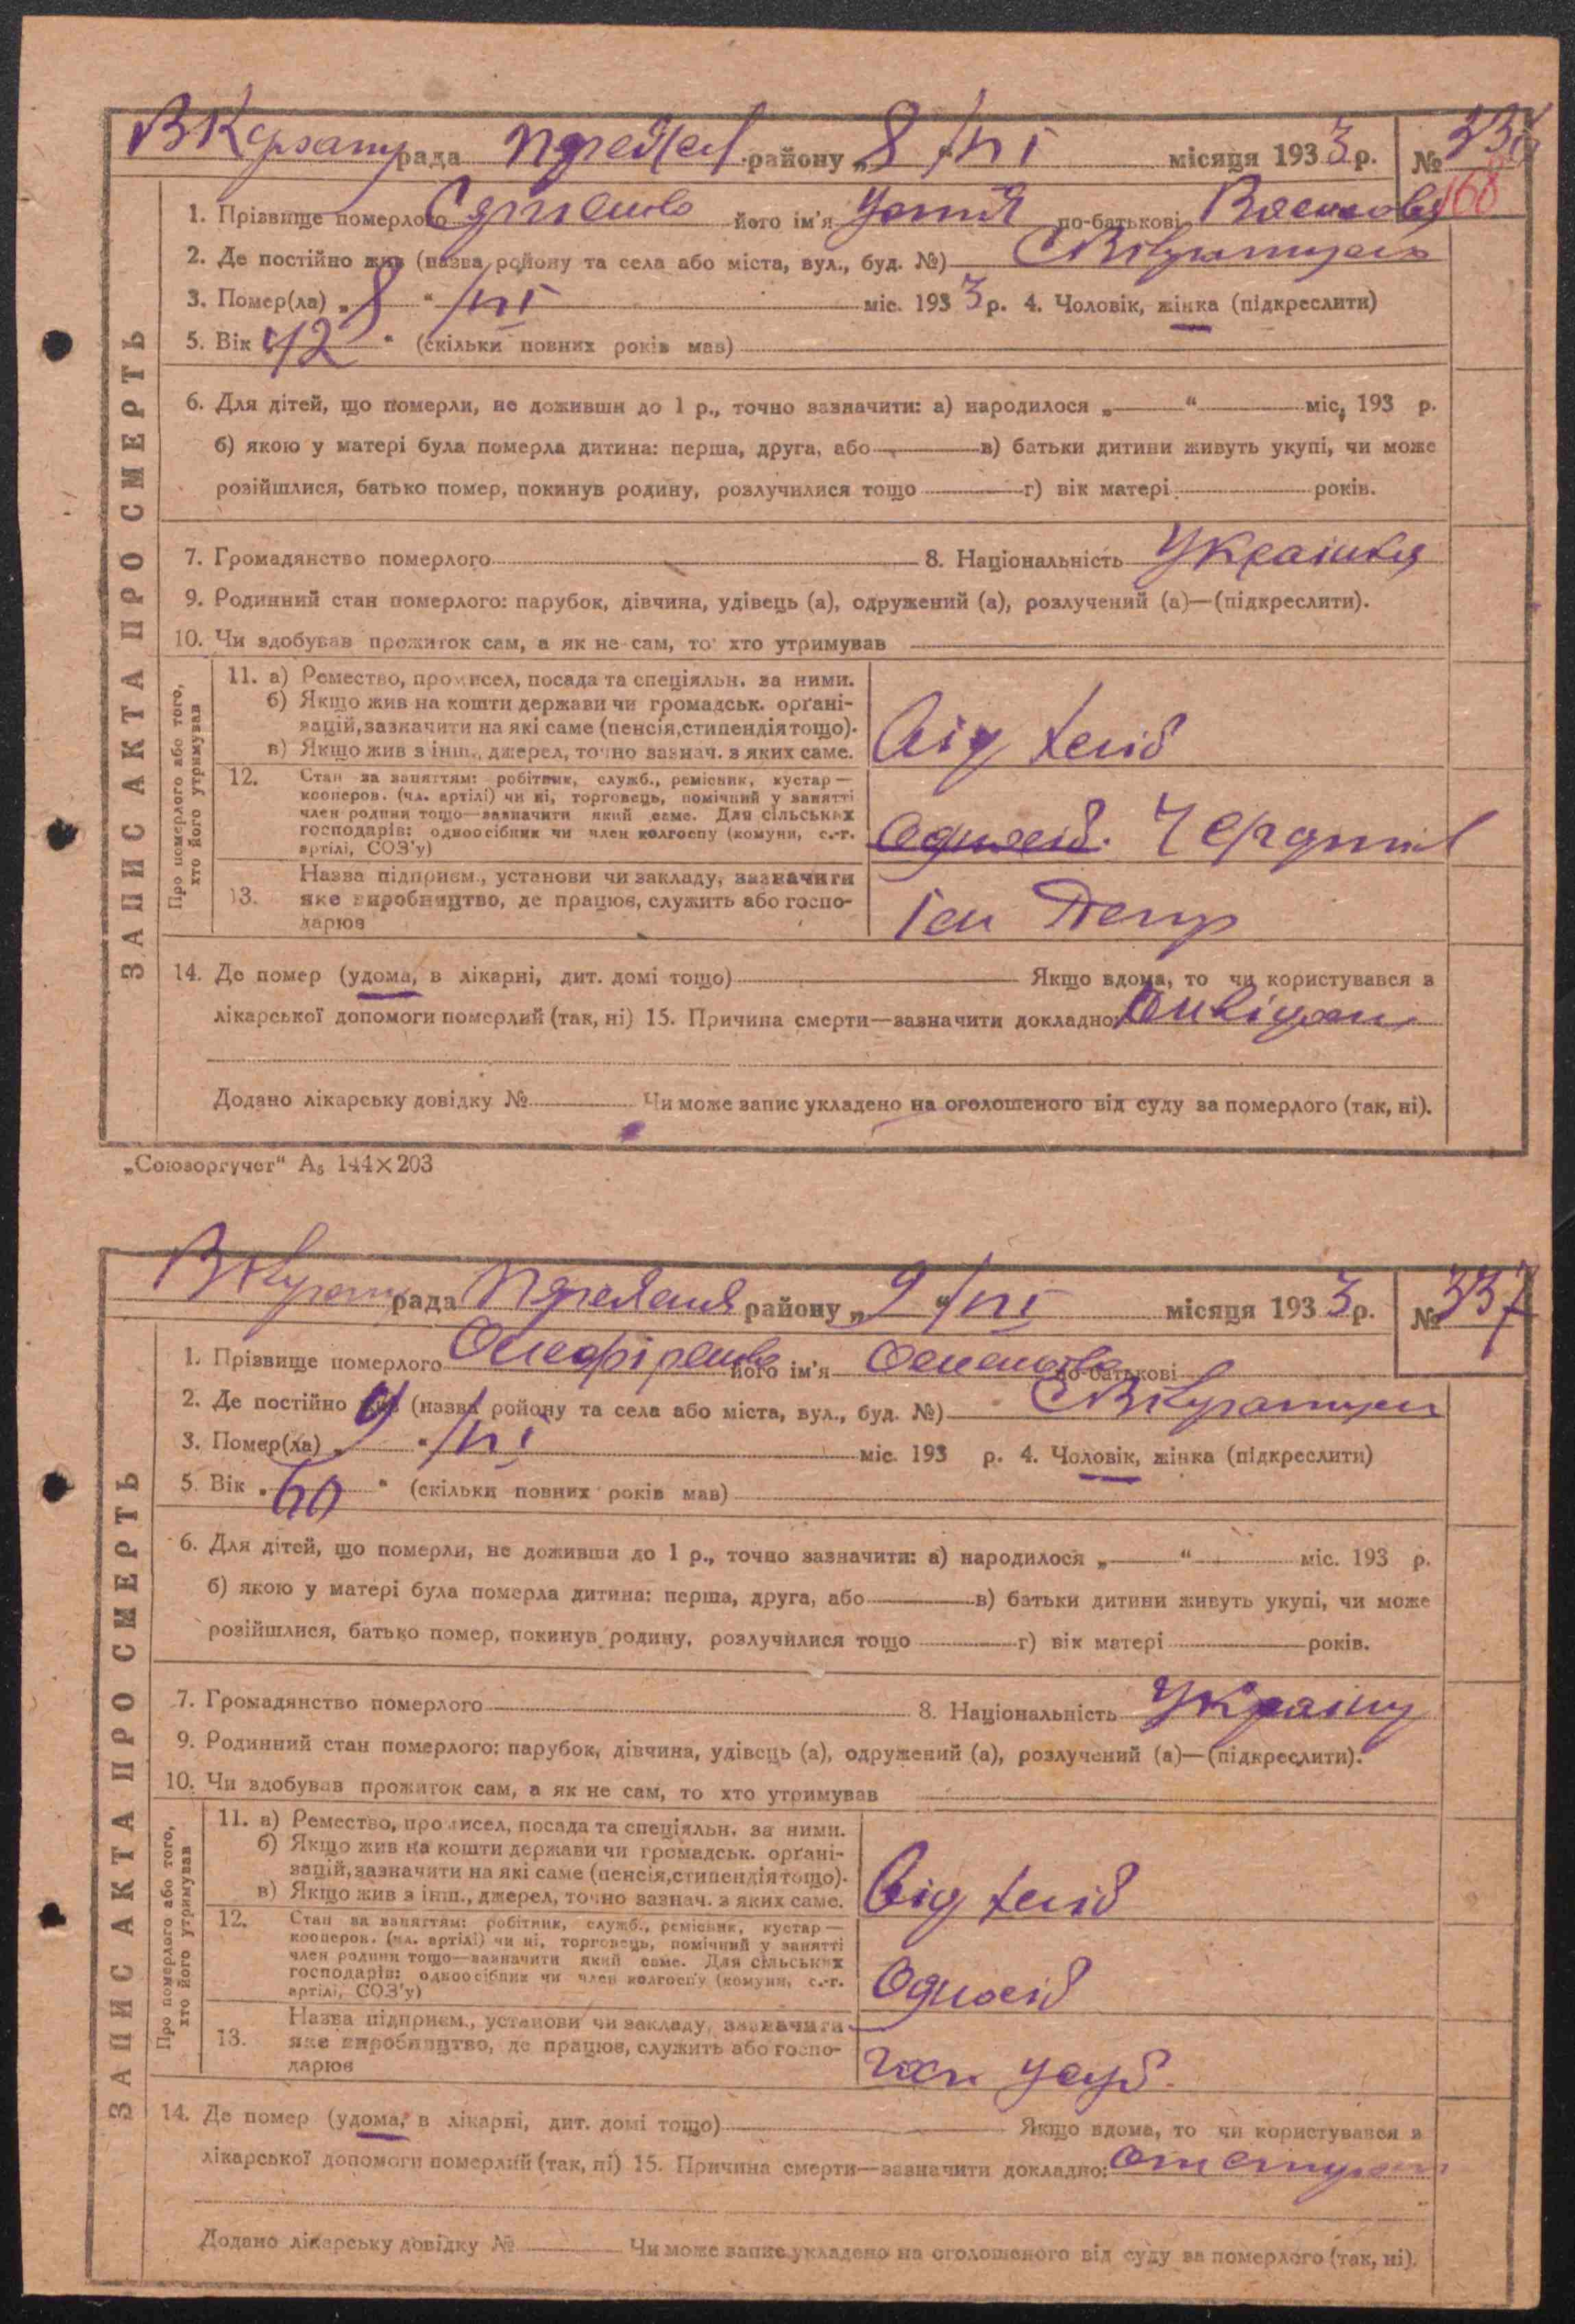 рада району „8 /VI місяця 1933 р. №
168
1. Прізвище померлого його ім'я по-батькові
2. Де постійно жив (назва ройону та села або міста, вул., буд. №)
3. Помер(ла) „8“ /VI міс. 1933 р. 4. Чоловік, жінка (підкреслити)
5. Вік „42“ (скільки повних років мав)
6. Для дітей, що померли, не доживши до 1 р., точно зазначити: а) народилося „ “ міс. 193 р.
б) якою у матері була померла дитина: перша, друга, або в) батьки дитини живуть укупі, чи може
розійшлися, батько помер, покинув родину, розлучилися тощо г) вік матері років.
7. Громадянство померлого 8. Національність Українка
9. Родинний стан померлого: парубок, дівчина, удівець (а), одружений (а), розлучений (а)—(підкреслити).
10. Чи здобував прожиток сам, а як не сам, то хто утримував
ЗАПИС АКТА ПРО СМЕРТЬ
Про померлого або того,
хто його утримував
11. а) Ремество, промисел, посада та спеціяльн. за ними.
б) Якщо жив на кошти держави чи громадськ. орґані-
зацій, зазначити на які саме (пенсія, стипендія тощо).
в) Якщо жив з інш., джерел, точно зазнач. з яких саме.
12. Стан за заняттям: робітник, служб., ремісник, кустар—
кооперов. (чл. артілі) чи ні, торговець, помічний у занятті
член родини тощо—зазначити який саме. Для сільських
господарів: одноосібник чи член колгоспу (комуни, с.-г.
артілі, СОЗ'у)
Одноосіб.
13. Назва підприєм., установи чи закладу, зазначити
яке виробництво, де працює, служить або госпо-
дарює
14. Де помер (удома, в лікарні, дит. домі тощо) Якщо вдома, то чи користувався з
лікарської допомоги померлий (так, ні) 15. Причина смерти—зазначити докладно:
Додано лікарську довідку № Чи може запис укладено на оголошеного від суду за померлого (так, ні).
„Союзоргучет“ А₅ 144×203
рада району „9“ /VI місяця 1933 р. № 337
1. Прізвище померлого його ім'я по-батькові
2. Де постійно жив (назва ройону та села або міста, вул., буд. №)
3. Помер(ла) „9“ /VI міс. 193 р. 4. Чоловік, жінка (підкреслити)
5. Вік „60“ (скільки повних років мав)
6. Для дітей, що померли, не доживши до 1 р., точно зазначити: а) народилося „ “ міс. 193 р.
б) якою у матері була померла дитина: перша, друга, або в) батьки дитини живуть укупі, чи може
розійшлися, батько помер, покинув родину, розлучилися тощо г) вік матері років.
7. Громадянство померлого 8. Національність
9. Родинний стан померлого: парубок, дівчина, удівець (а), одружений (а), розлучений (а)—(підкреслити).
10. Чи здобував прожиток сам, а як не сам, то хто утримував
ЗАПИС АКТА ПРО СМЕРТЬ
Про померлого або того,
хто його утримував
11. а) Ремество, промисел, посада та спеціяльн. за ними.
б) Якщо жив на кошти держави чи громадськ. орґані-
зацій, зазначити на які саме (пенсія, стипендія тощо).
в) Якщо жив з інш., джерел, точно зазнач. з яких саме.
12. Стан за заняттям: робітник, служб., ремісник, кустар—
кооперов. (чл. артілі) чи ні, торговець, помічний у занятті
член родини тощо—зазначити який саме. Для сільських
господарів: одноосібник чи член колгоспу (комуни, с.-г.
артілі, СОЗ'у)
Одноосіб
13. Назва підприєм., установи чи закладу, зазначити
яке виробництво, де працює, служить або госпо-
дарює
14. Де помер (удома, в лікарні, дит. домі тощо) Якщо вдома, то чи користувався з
лікарської допомоги померлий (так, ні) 15. Причина смерти—зазначити докладно:
Додано лікарську довідку № Чи може запис укладено на оголошеного від суду за померлого (так, ні).